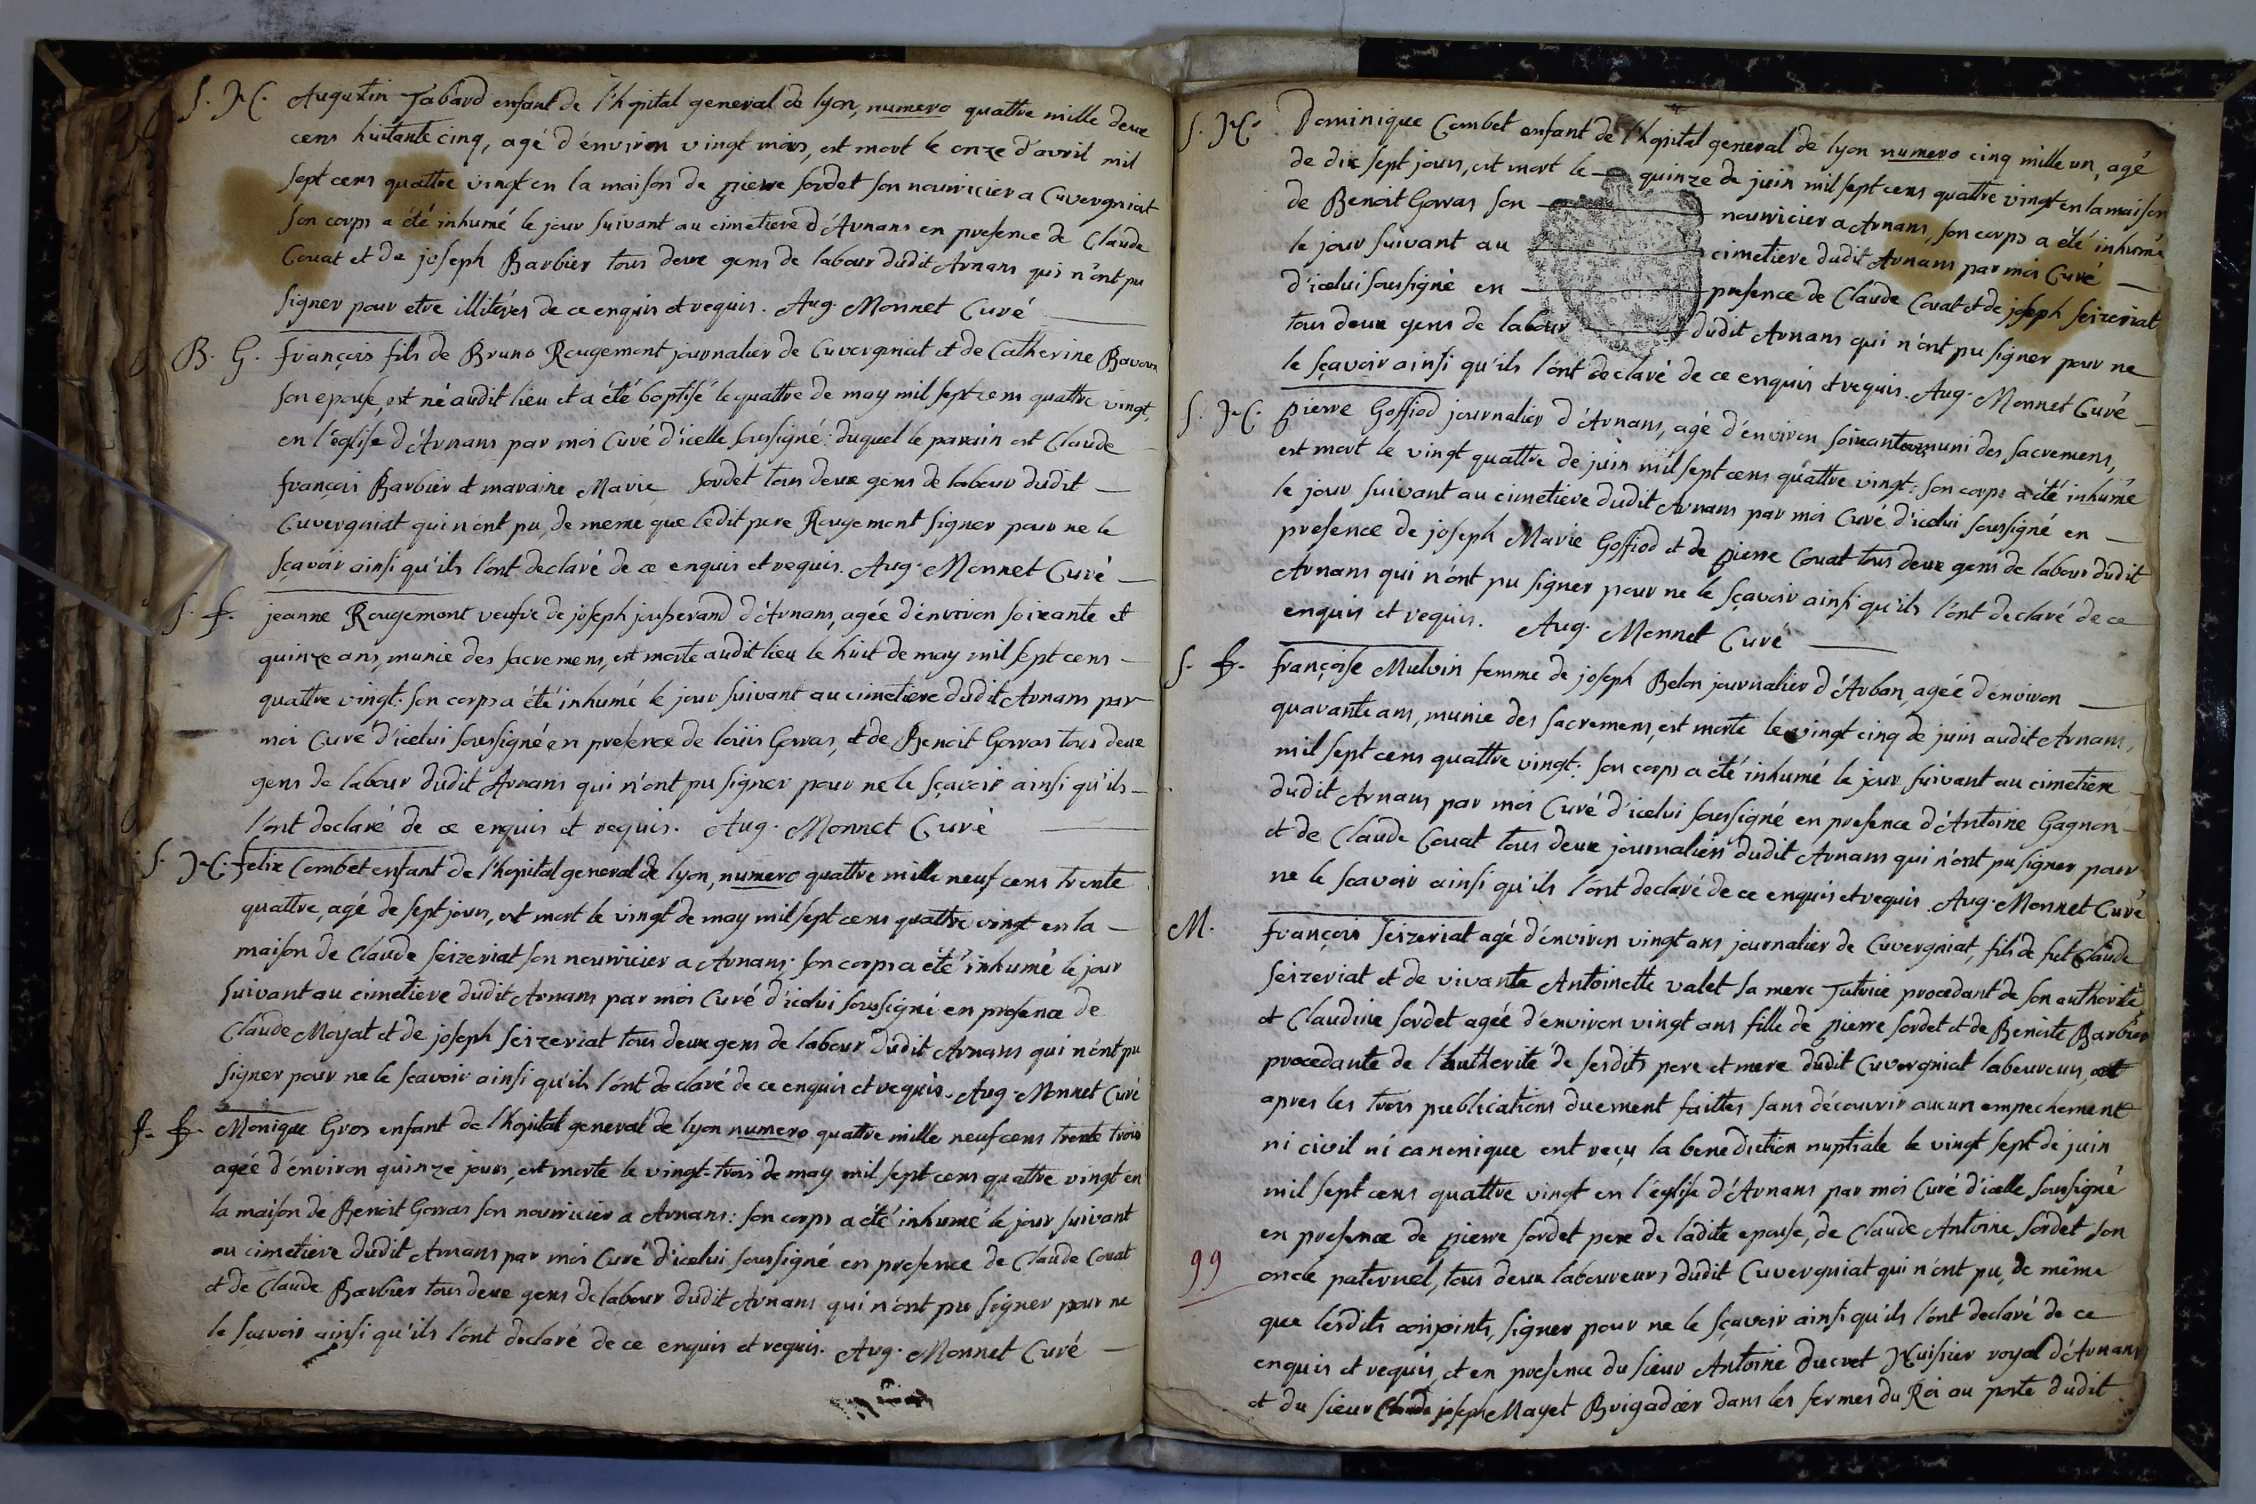 S. H. Augustin Tabard enfant de l'hopital general de lyon, numero quattre mille deux
cens huitante cinq, agé d'environ vingt mois, est mort le onze d'avril mil
sept cens quattre vingt en la maison de pierre sordet son nourricier a Cuvergniat
son corps a été inhumé le jour suivant au cimetiere d'Arnans en presence de Claude
Couat et de joseph Barbier tous deux gens de labour dudit Arnans qui n'ont pu
signer pour etre illiterés de ce enquis et requis. Aug. Monnet Curé
B. G. françois fils de Bruno Rougemont journalier de Cuvergniat et de Catherine
son epouse, est né audit lieu et a été baptisé le quattre de may mil sept cens quattre vingt,
en l'église d'Arnans par moi Curé d'icelle soussigné: duquel le parain est Claude
françois Barbier et maraine Marie sordet tous deux gens de labour dudit
Cuvergniat qui n'ont pu, de meme que ledit pere Rougemont signer pour ne le
sçavoir ainsi qu'ils l'ont declaré de ce enquis et requis. Aug. Monnet Curé
S. f. jeanne Rougemont veufve de joseph jouserand d'Arnans, agée d'environ soixante et
quinze ans, munie des sacremens, est morte audit lieu le huit de may mil sept cens
quattre vingt: son corps a été inhumé le jour suivant au cimetiere dudit Arnans par
moi Curé d'icelui soussigné en presence de loüis Gorras, et de Benoit Gorras tous deux
gens de labour dudit Arnans qui n'ont pu signer pour ne le sçavoir ainsi qu'ils
l'ont declaré de ce enquis et requis. Aug. Monnet Curé
S. H. felix Combet enfant de l'hopital general de lyon, numero quattre mille neuf cens trente
quattre, agé de sept jours, est mort le vingt de may mil sept cens quattre vingt en la
maison de Claude Seizeriat son nourricier a Arnans; son corps a été inhumé le jour
suivant au cimetiere dudit Arnans par moi Curé d'icelui soussigné en presence de
Claude Moyat et de joseph Seizeriat tous deux gens de labour dudit Arnans qui n'ont pu
signer pour ne le sçavoir ainsi qu'ils l'ont declaré de ce enquis et requis. Aug. Monnet Curé
S. f. Monique Gros enfant de l'hopital general de lyon numero quattre mille neuf cens trente trois
agée d'environ quinze jours, est morte le vingt-trois de may mil sept cens quattre vingt en
la maison de Benoit Gorras son nourricier a Arnans: son corps a été inhumé le jour suivant
au cimetiere dudit Arnans par moi Curé d'icelui soussigné en presence de Claude Couat
et de Claude Barbier tous deux gens de labour dudit Arnans qui n'ont pu signer pour ne
le sçavoir ainsi qu'ils l'ont declaré de ce enquis et requis. Aug. Monnet Curé
S. H. Dominique Combet enfant de l'hopital general de lyon numero cinq mille un, agé
de dix sept jours, est mort le quinze de juin mil sept cens quattre vingt en la maison
de Benoit Gorras son nourricier a Arnans, son corps a été inhumé
le jour suivant au cimetiere dudit Arnans par moi Curé
d'icelui soussigné en presence de Claude Couat et de joseph Seizeriat
tous deux gens de labour dudit Arnans qui n'ont pu signer pour ne
le sçavoir ainsi qu'ils l'ont declaré de ce enquis et requis. Aug. Monnet Curé
S. H. pierre Goffiod journalier d'Arnans, agé d'environ soixante muni des sacremens,
est mort le vingt quattre de juin mil sept cens quattre vingt: son corps a été inhumé
le jour suivant au cimetiere dudit Arnans par moi Curé d'icelui soussigné en
presence de joseph Marie Goffiod et de pierre Couat tous deux gens de labour dudit
Arnans qui n'ont pu signer pour ne le sçavoir ainsi qu'ils l'ont declaré de ce
enquis et requis. Aug. Monnet Curé
S. f. françoise Mulvin femme de joseph Belon journalier d'Arban, agée d'environ
quarante ans, munie des sacremens, est morte le vingt cinq de juin audit Arnans,
mil sept cens quattre vingt: son corps a été inhumé le jour suivant au cimetiere
dudit Arnans par moi Curé d'icelui soussigné en presence d'Antoine Gagnon
et de Claude Couat tous deux journaliers dudit Arnans qui n'ont pu signer pour
ne le sçavoir ainsi qu'ils l'ont declaré de ce enquis et requis. Aug. Monnet Curé
M. françois Seizeriat agé d'environ vingt ans journalier de Cuvergniat, fils de fut Claude
Seizeriat et de vivante Antoinette valet sa mere Tutrice procedant de son authorité
et Claudine sordet agée d'environ vingt ans fille de pierre sordet et de Benoite Barbier
procedante de l'authorité de sesdits pere et mere dudit Cuvergniat laboureurs,
apres les trois publications duement faittes sans découvrir aucun empechement
ni civil ni canonique ont reçu la benediction nuptiale le vingt sept de juin
mil sept cens quattre vingt en l'église d'Arnans par moi Curé d'icelle soussigné
en presence de pierre sordet pere de ladite epouse, de Claude Antoine sordet son
99 oncle paternel, tous deux laboureurs dudit Cuvergniat qui n'ont pu, de même
que lesdits conjoints, signer pour ne le sçavoir ainsi qu'ils l'ont declaré de ce
enquis et requis, et en presence du sieur Antoine Ducret Huissier royal d'Arnans
et du sieur Claude joseph Mayet Brigadier dans les fermes du Roi au poste dudit